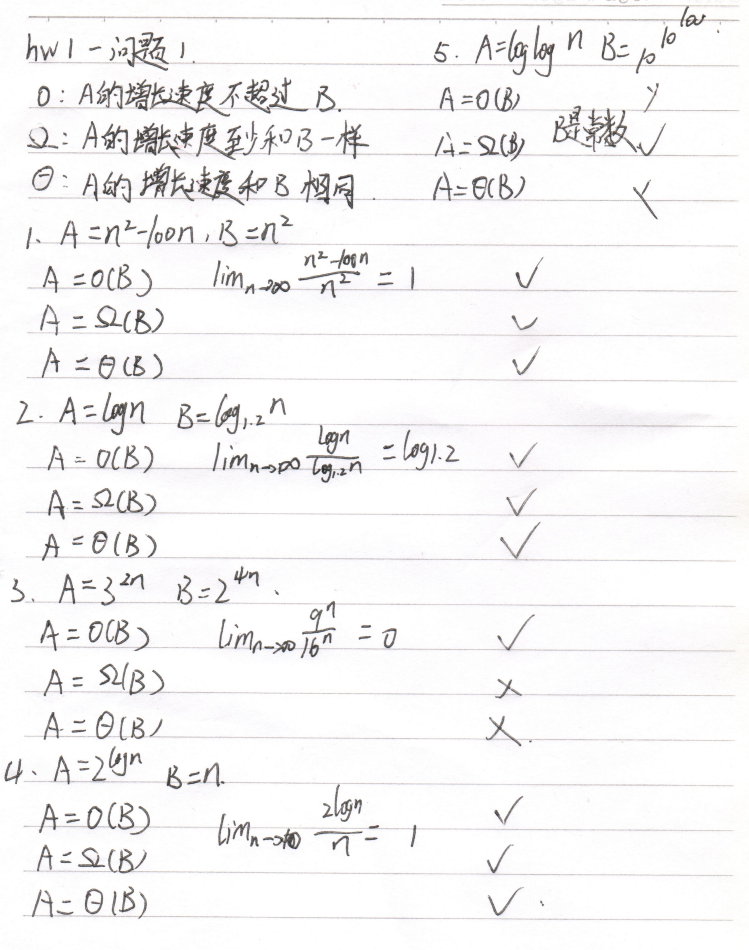 hw1-问题1.
O: A的增长速度不超过B.
Ω: A的增长速度至少和B一样
Θ: A的增长速度和B相同.
1. A=n²-100n, B=n²
A=O(B) lim n→∞ (n²-100n)/n² = 1 ✓
A=Ω(B) ✓
A=Θ(B) ✓
2. A=logn B=log₁.₂n
A=O(B) lim n→∞ logn/log₁.₂n = log1.2 ✓
A=Ω(B) ✓
A=Θ(B) ✓
3. A=3^2n B=2^4n.
A=O(B) lim n→∞ 9^n/16^n = 0 ✓
A=Ω(B) ×
A=Θ(B) ×.
4. A=2^logn B=n.
A=O(B) lim n→∞ 2^logn/n = 1 ✓
A=Ω(B) ✓
A=Θ(B) ✓.
5. A=loglogn B=10^10^100.
A=O(B)
A=Ω(B) B是常数 ✓
A=Θ(B) ×